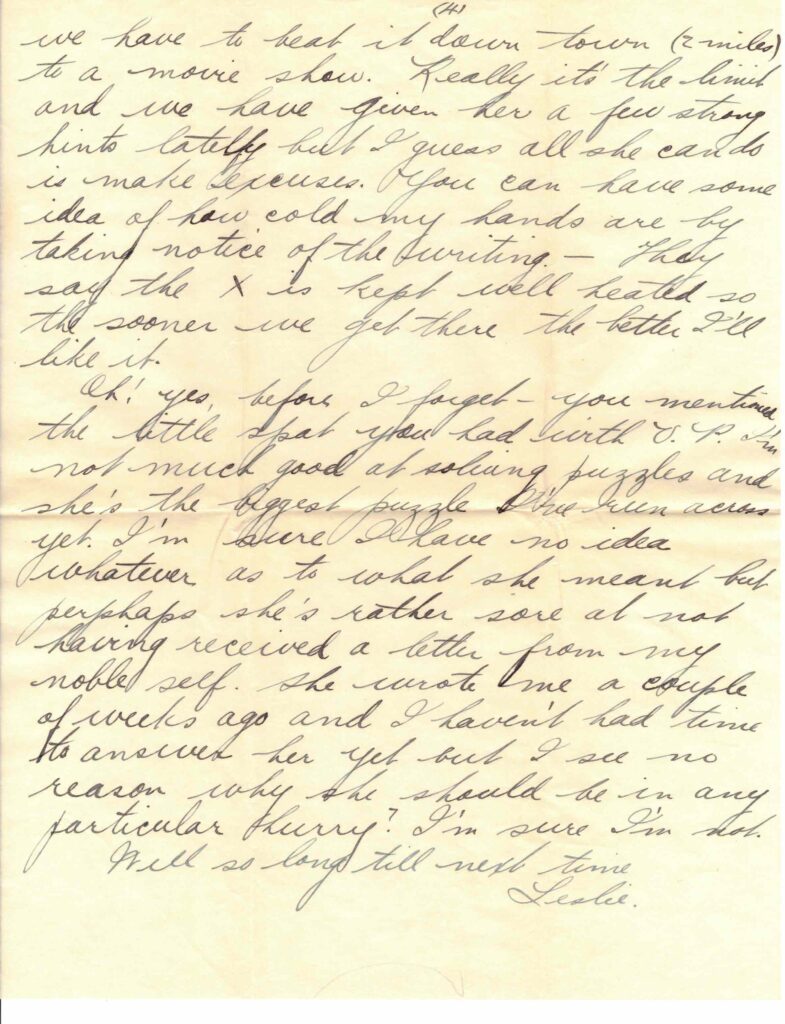 (4)
we have to beat it down town (2 miles)
to a movie show. Really it's the limit
and we have given her a few strong
hints lately but I guess all she can do
is make excuses. You can have some
idea of how cold my hands are by
taking notice of the writing. — They
say the X is kept well heated so
the sooner we get there the better I'll
like it.
Oh! yes, before I forget - you mentioned
the little spat you had with V. P. I'm
not much good at solving puzzles and
she's the biggest puzzle I've run across
yet. I'm sure I have no idea
whatever as to what she meant but
perphaps she's rather sore at not
having received a letter from my
noble self. She wrote me a couple
of weeks ago and I haven't had time
to answer her yet but I see no
reason why she should be in any
particular hurry? I'm sure I'm not.
Well so long till next time
Leslie.